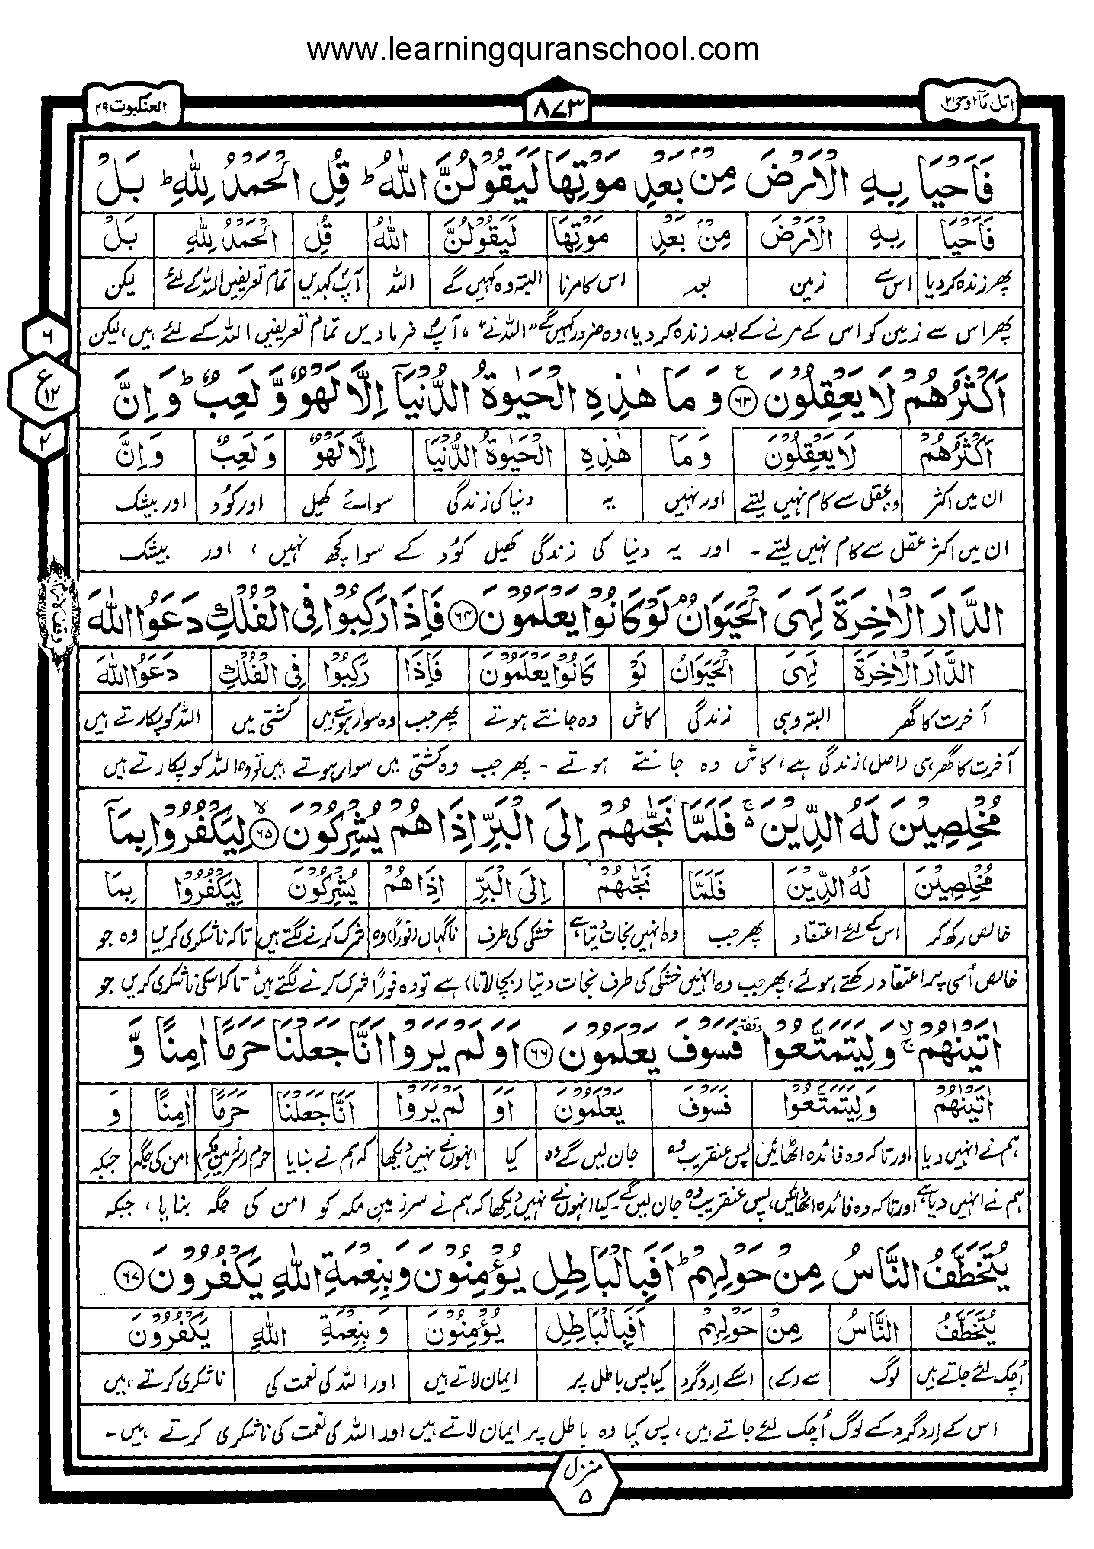 www.learningquranschool.com
اتل مآ اوحی ۲۱
۸۷۳
العنکبوت ۲۹
فَاَحْيَا بِهِ الْاَرْضَ مِنْۢ بَعْدِ مَوْتِهَا لَيَقُوْلُنَّ اللّٰهُ ؕ قُلِ الْحَمْدُ لِلّٰهِ ؕ بَلْ
فَاَحْيَا بِهِ الْاَرْضَ مِنْۢ بَعْدِ مَوْتِهَا لَيَقُوْلُنَّ اللّٰهُ قُلِ الْحَمْدُ لِلّٰهِ بَلْ
پھر زندہ کر دیا اس سے زمین بعد اس کا مرنا البتہ وہ کہیں گے اللہ آپ کہدیں تمام تعریفیں اللہ کے لئے لیکن
پھر اس سے زمین کو اس کے مرنے کے بعد زندہ کر دیا، وہ ضرور کہیں گے "اللہ نے"، آپ فرما دیں تمام تعریفیں اللہ کے لئے ہیں، لیکن
۶
ع
۱۲
۲
اَكْثَرُهُمْ لَا يَعْقِلُوْنَ ۶۳ وَ مَا هٰذِهِ الْحَيٰوةُ الدُّنْيَاۤ اِلَّا لَهْوٌ وَّ لَعِبٌ ؕ وَ اِنَّ
اَكْثَرُهُمْ لَا يَعْقِلُوْنَ وَ مَا هٰذِهِ الْحَيٰوةُ الدُّنْيَا اِلَّا لَهْوٌ وَ لَعِبٌ وَ اِنَّ
ان میں اکثر وہ عقل سے کام نہیں لیتے اور نہیں یہ دنیا کی زندگی سوائے کھیل اور کود اور بیشک
ان میں اکثر عقل سے کام نہیں لیتے ۔ اور یہ دنیا کی زندگی کھیل کود کے سوا کچھ نہیں ، اور بیشک
الدَّارَ الْاٰخِرَةَ لَهِيَ الْحَيَوَانُ ۘ لَوْ كَانُوْا يَعْلَمُوْنَ ۶۴ فَاِذَا رَكِبُوْا فِي الْفُلْكِ دَعَوُا اللّٰهَ
الدَّارَ الْاٰخِرَةَ لَهِيَ الْحَيَوَانُ لَوْ كَانُوْا يَعْلَمُوْنَ فَاِذَا رَكِبُوْا فِي الْفُلْكِ دَعَوُا اللّٰهَ
آخرت کا گھر البتہ وہی زندگی کاش وہ جانتے ہوتے پھر جب وہ سوار ہوتے ہیں کشتی میں اللہ کو پکارتے ہیں
آخرت کا گھر ہی (اصل) زندگی ہے، کاش وہ جانتے ہوتے ۔ پھر جب وہ کشتی میں سوار ہوتے ہیں تو وہ اللہ کو پکارتے ہیں
مُخْلِصِيْنَ لَهُ الدِّيْنَ ۚ۬ فَلَمَّا نَجّٰىهُمْ اِلَى الْبَرِّ اِذَا هُمْ يُشْرِكُوْنَ ۙ ۶۵ لِيَكْفُرُوْا بِمَاۤ
مُخْلِصِيْنَ لَهُ الدِّيْنَ فَلَمَّا نَجّٰىهُمْ اِلَى الْبَرِّ اِذَا هُمْ يُشْرِكُوْنَ لِيَكْفُرُوْا بِمَا
خالص رکھ کر اس کے لئے اعتقاد پھر جب وہ انہیں نجات دیتا ہے خشکی کی طرف ناگہاں (فوراً) وہ شرک کرنے لگتے ہیں تاکہ ناشکری کریں وہ جو
خالص اُسی پر اعتقاد رکھتے ہوئے، پھر جب وہ انہیں خشکی کی طرف نجات دیتا (بچا لاتا) ہے تو وہ فوراً شرک کرنے لگتے ہیں تاکہ اسکی ناشکری کریں جو
اٰتَيْنٰهُمْ ۙۚ وَ لِيَتَمَتَّعُوْا ٝ فَسَوْفَ يَعْلَمُوْنَ ۶۶ اَوَ لَمْ يَرَوْا اَنَّا جَعَلْنَا حَرَمًا اٰمِنًا وَّ
اٰتَيْنٰهُمْ وَ لِيَتَمَتَّعُوْا فَسَوْفَ يَعْلَمُوْنَ اَوَ لَمْ يَرَوْا اَنَّا جَعَلْنَا حَرَمًا اٰمِنًا وَ
ہم نے انہیں دیا اور تاکہ وہ فائدہ اٹھائیں پس عنقریب وہ جان لیں گے وہ کیا انہوں نے نہیں دیکھا کہ ہم نے بنایا حرم (سرزمین مکہ) امن کی جگہ جبکہ
ہم نے انہیں دیا ہے اور تاکہ وہ فائدہ اٹھائیں، پس عنقریب وہ جان لیں گے ۔ کیا انہوں نے نہیں دیکھا کہ ہم نے سرزمین مکہ کو امن کی جگہ بنایا ، جبکہ
يُتَخَطَّفُ النَّاسُ مِنْ حَوْلِهِمْ ؕ اَفَبِالْبَاطِلِ يُؤْمِنُوْنَ وَ بِنِعْمَةِ اللّٰهِ يَكْفُرُوْنَ ۶۷
يُتَخَطَّفُ النَّاسُ مِنْ حَوْلِهِمْ اَفَبِالْبَاطِلِ يُؤْمِنُوْنَ وَ بِنِعْمَةِ اللّٰهِ يَكْفُرُوْنَ
اُچک لئے جاتے ہیں لوگ سے (کے) اسکے اردگرد کیا پس باطل پر ایمان لاتے ہیں اور اللہ کی نعمت کی ناشکری کرتے ہیں
اس کے اردگرد کے لوگ اُچک لئے جاتے ہیں، پس کیا وہ باطل پر ایمان لاتے ہیں اور اللہ کی نعمت کی ناشکری کرتے ہیں ۔
منزل
۵